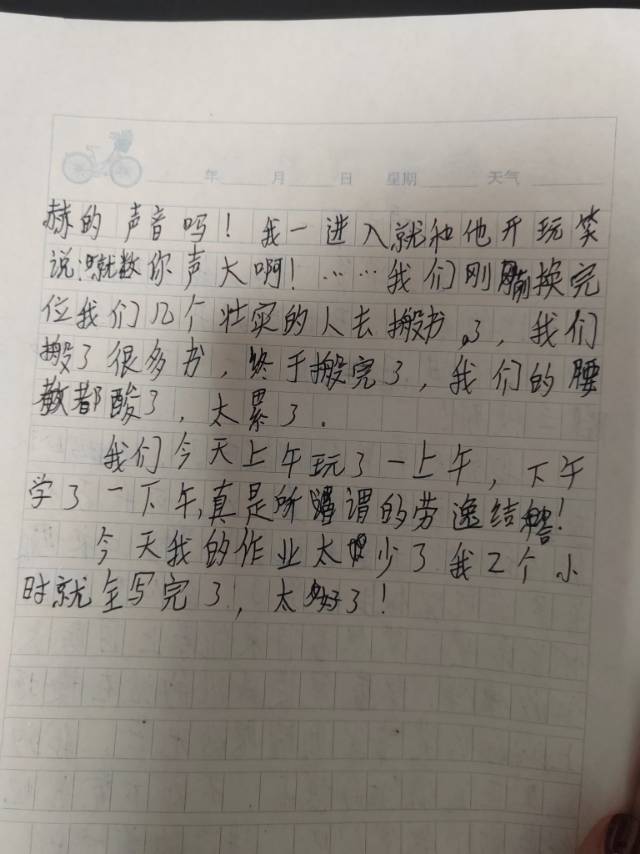 年 月 日 星期 天气
赫的声音吗！我一进入就和他开玩笑
说：就数你声大啊！……我们刚换完
位我们几个壮实的人去搬书了，我们
搬了很多书，终于搬完了，我们的腰
都酸了，太累了.
我们今天上午玩了一上午，下午
学了一下午,真是所谓的劳逸结合！
今天我的作业太少了我2个小
时就全写完了，太好了！